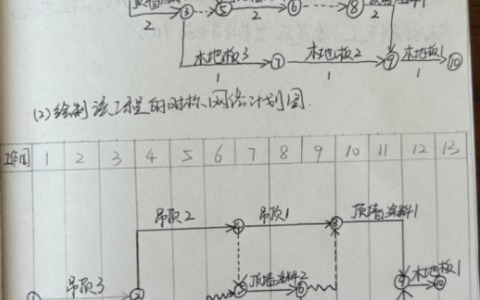 2 ③ ⑤ 2 ⑥ ⑧ 2
木地板3 ⑦ 木地板2 ⑨ 木地板1 ⑩
1 1 1
(2)绘制该工程的时标网络计划图.
1 2 3 4 5 6 7 8 9 10 11 12 13
吊顶2 ④ 吊顶1 顶墙涂料1
吊顶3 ② 顶墙涂料2 ⑥ ⑨ 木地板1 ⑩